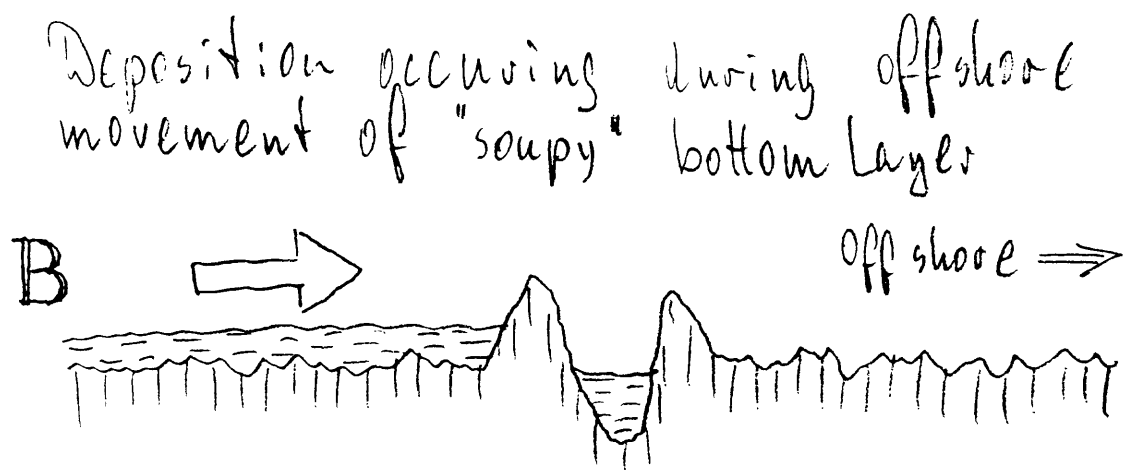 Deposition occuring during offshore
movement of "soupy" bottom Layer
B
Offshore